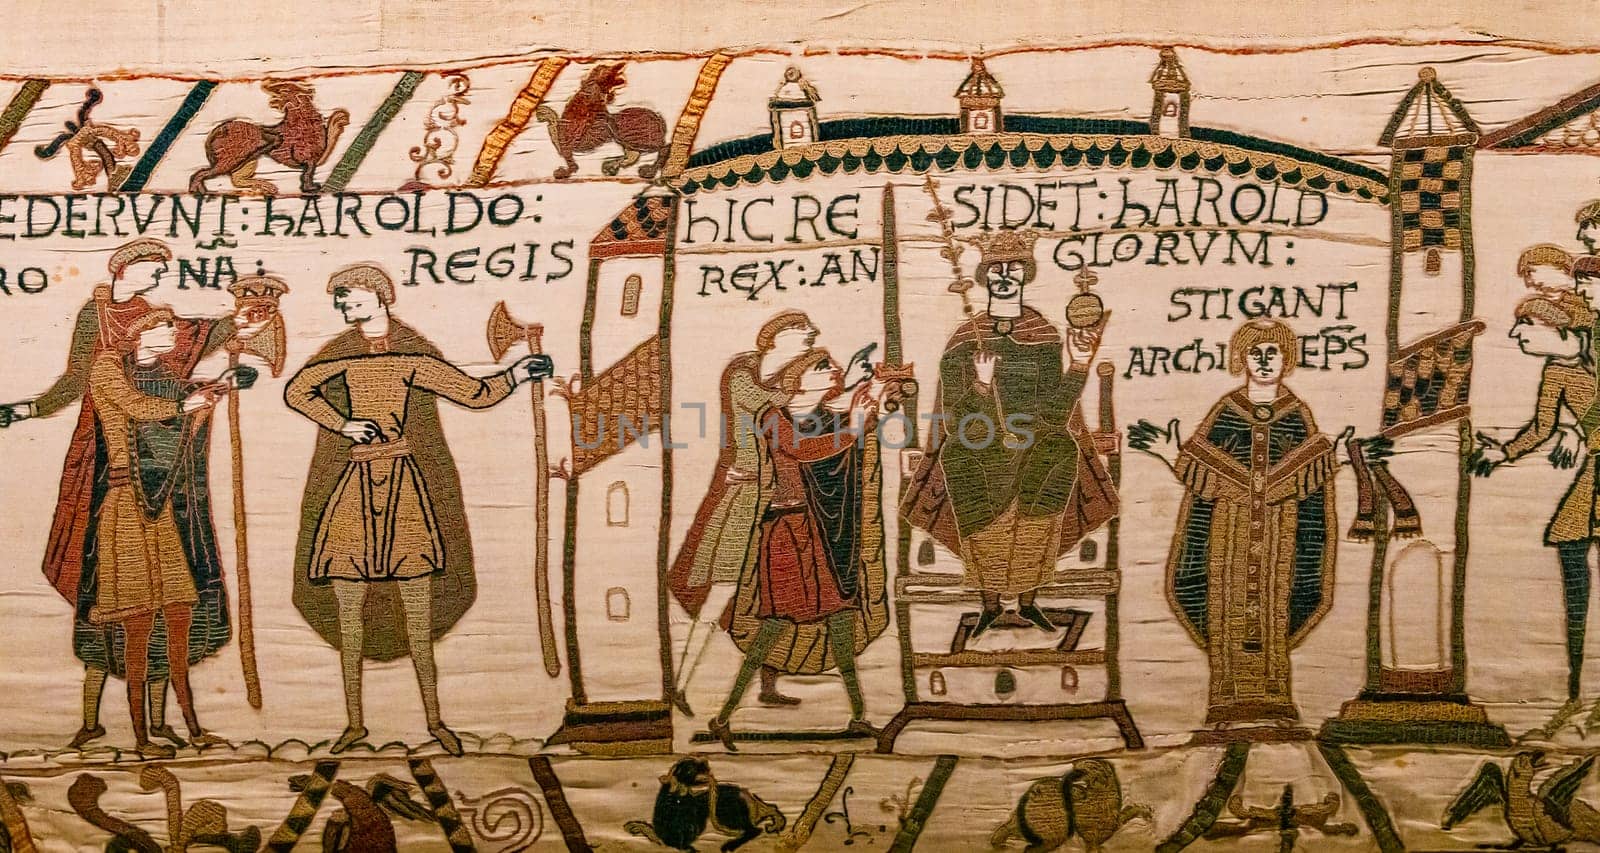 EDERVNT : hAROLDO :
RO NA : REGIS
hIC RE SIDET : hAROLD
REX : AN GLORVM :
STIGANT
ARChI EPS
UNLIMPHOTOS